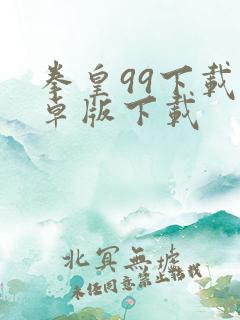 拳皇99下载
卓版下载
北冥無墟
未经同意禁止转载